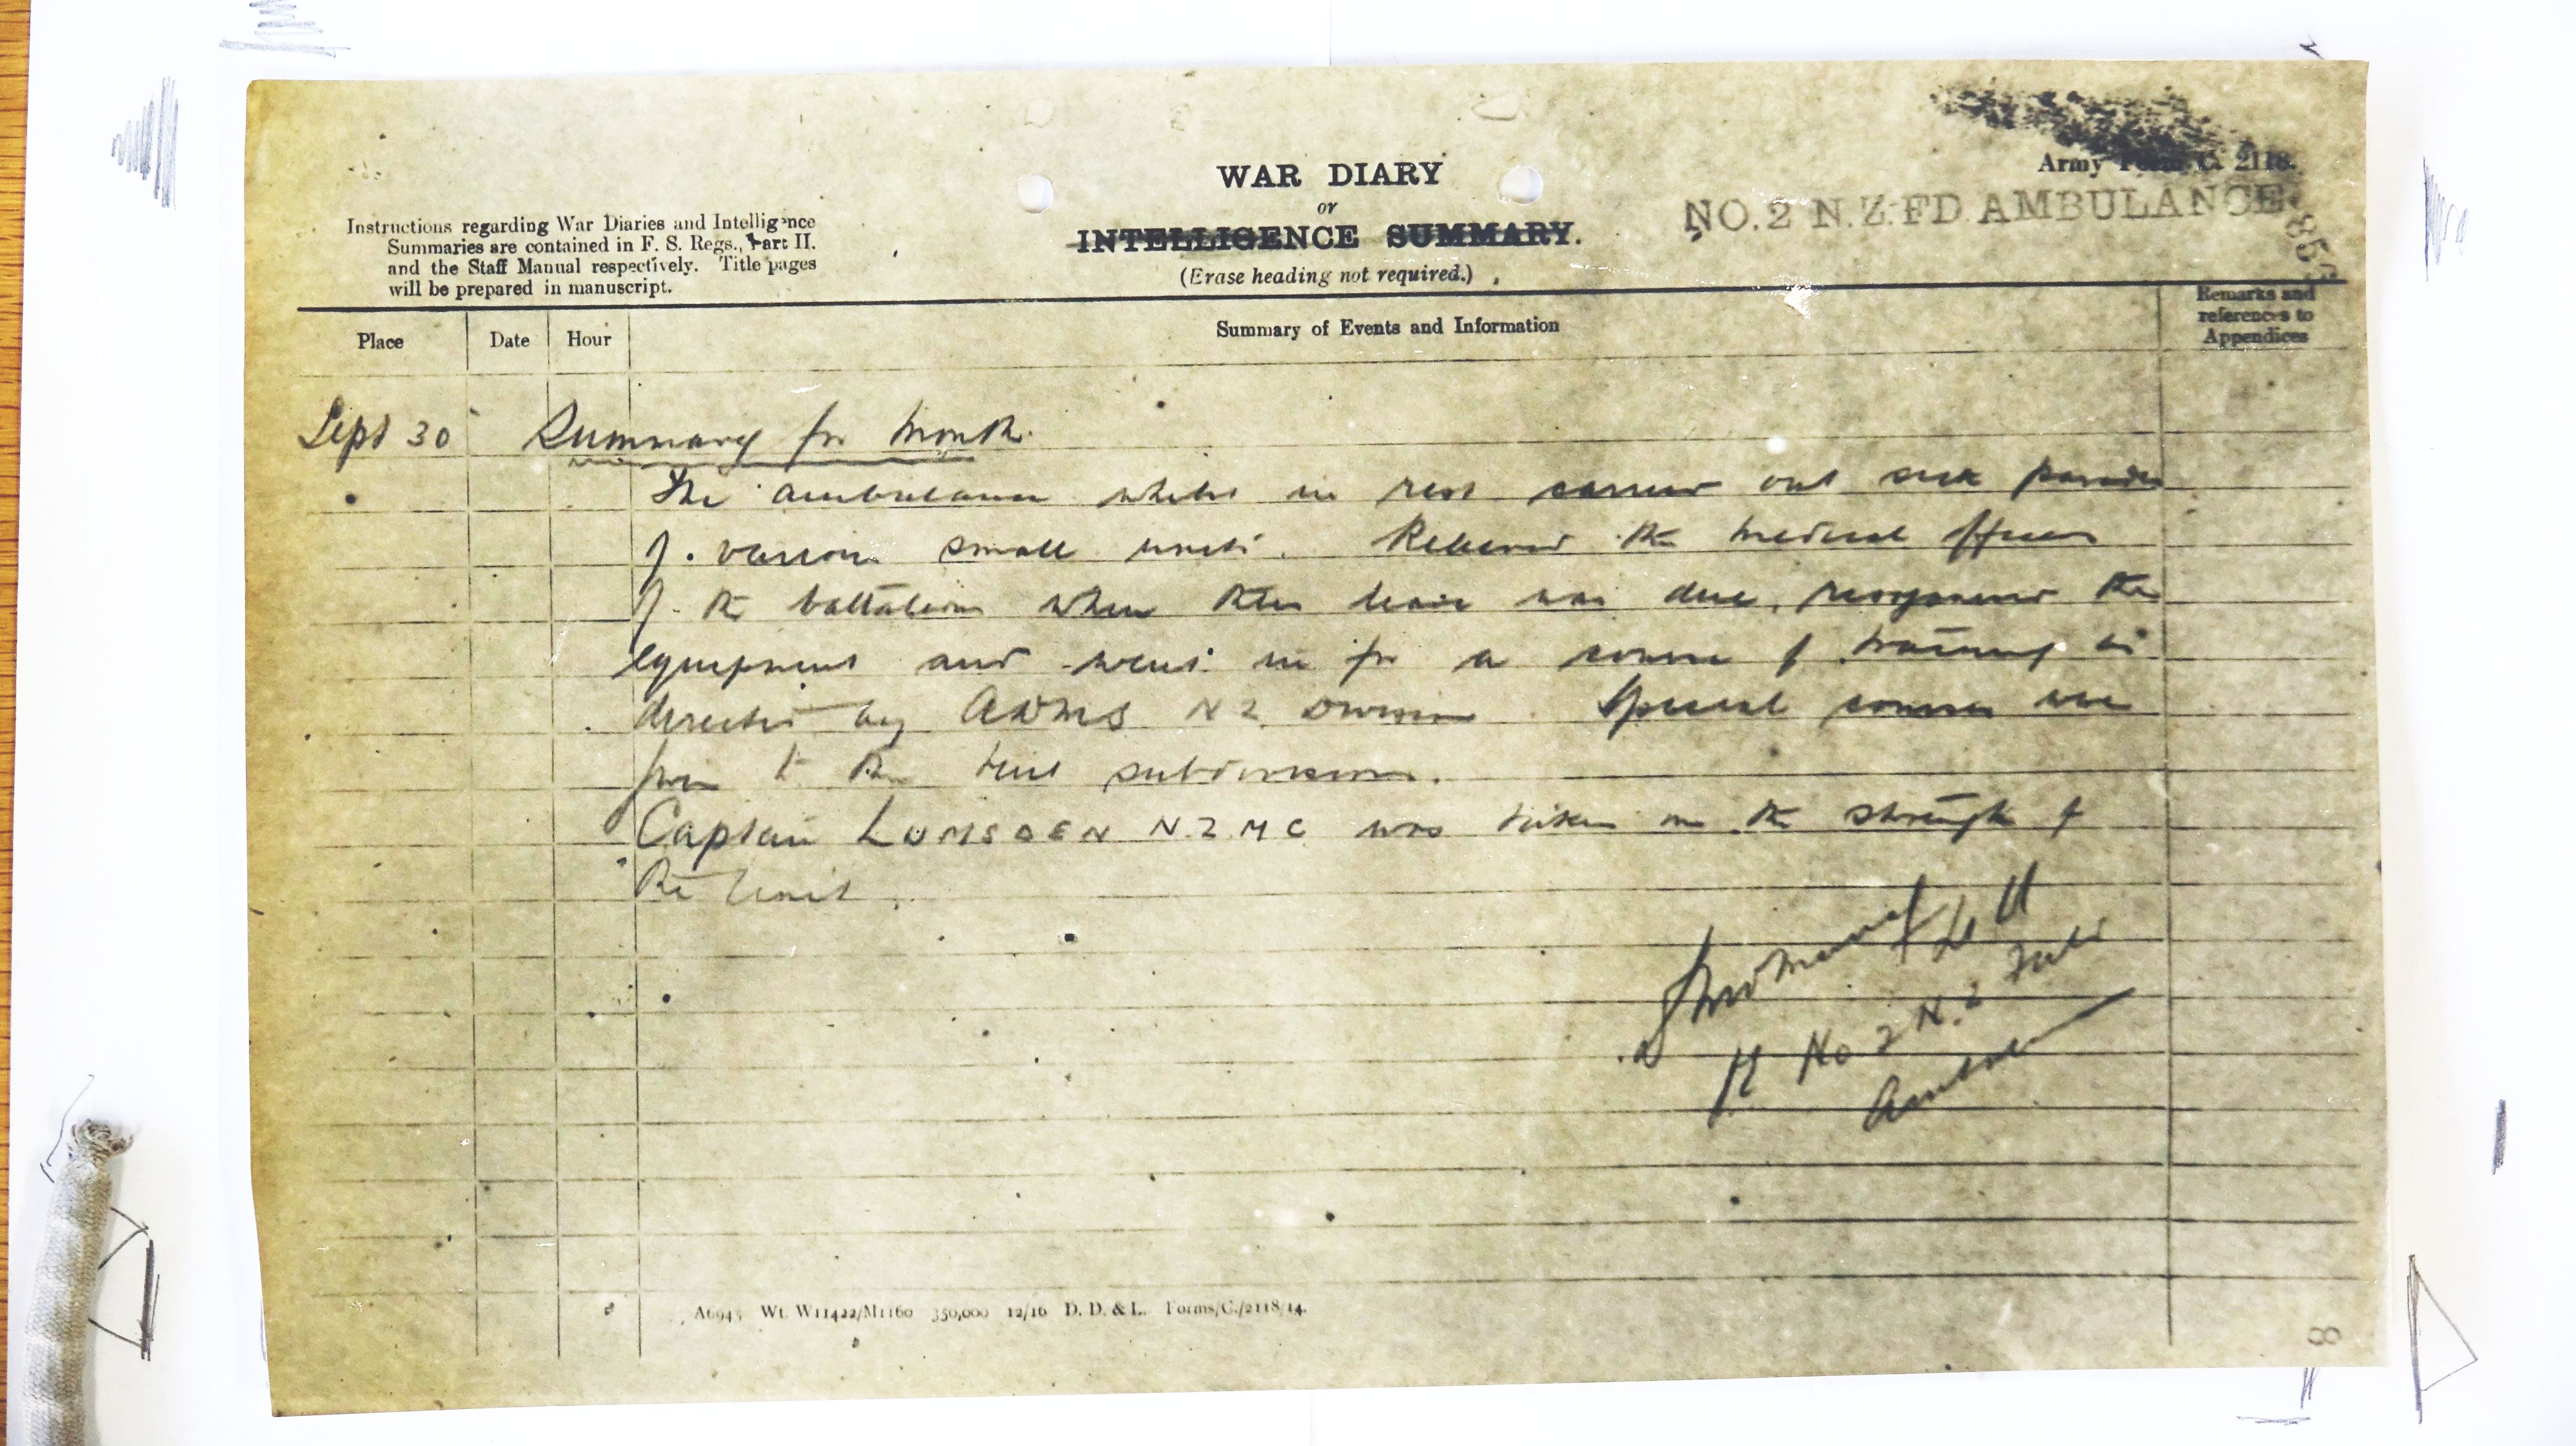 Army Form C. 2118.
WAR DIARY
or
INTELLIGENCE SUMMARY.
(Erase heading not required.)
NO. 2 N.Z. FD. AMBULANCE
Instructions regarding War Diaries and Intelligence
Summaries are contained in F. S. Regs., Part II.
and the Staff Manual respectively. Title pages
will be prepared in manuscript.
Place Date Hour Summary of Events and Information Remarks and references to Appendices
Sept 30 Summary for Month.
The ambulance whilst in rest carried out sick parades
of various small units. Relieved the medical officers
of the battalions when their leave was due, reorganised the
equipment and went in for a course of training as
directed by ADMS NZ Division. Special courses were
given to the tent subdivisions.
Captain LUMSDEN NZMC was taken on the strength of
the Unit.
Lt Col
No 2 N.Z Field
Ambulance
A6943 Wt. W11422/M1160 350,000 12/16 D. D. & L. Forms/C./2118/14.
8